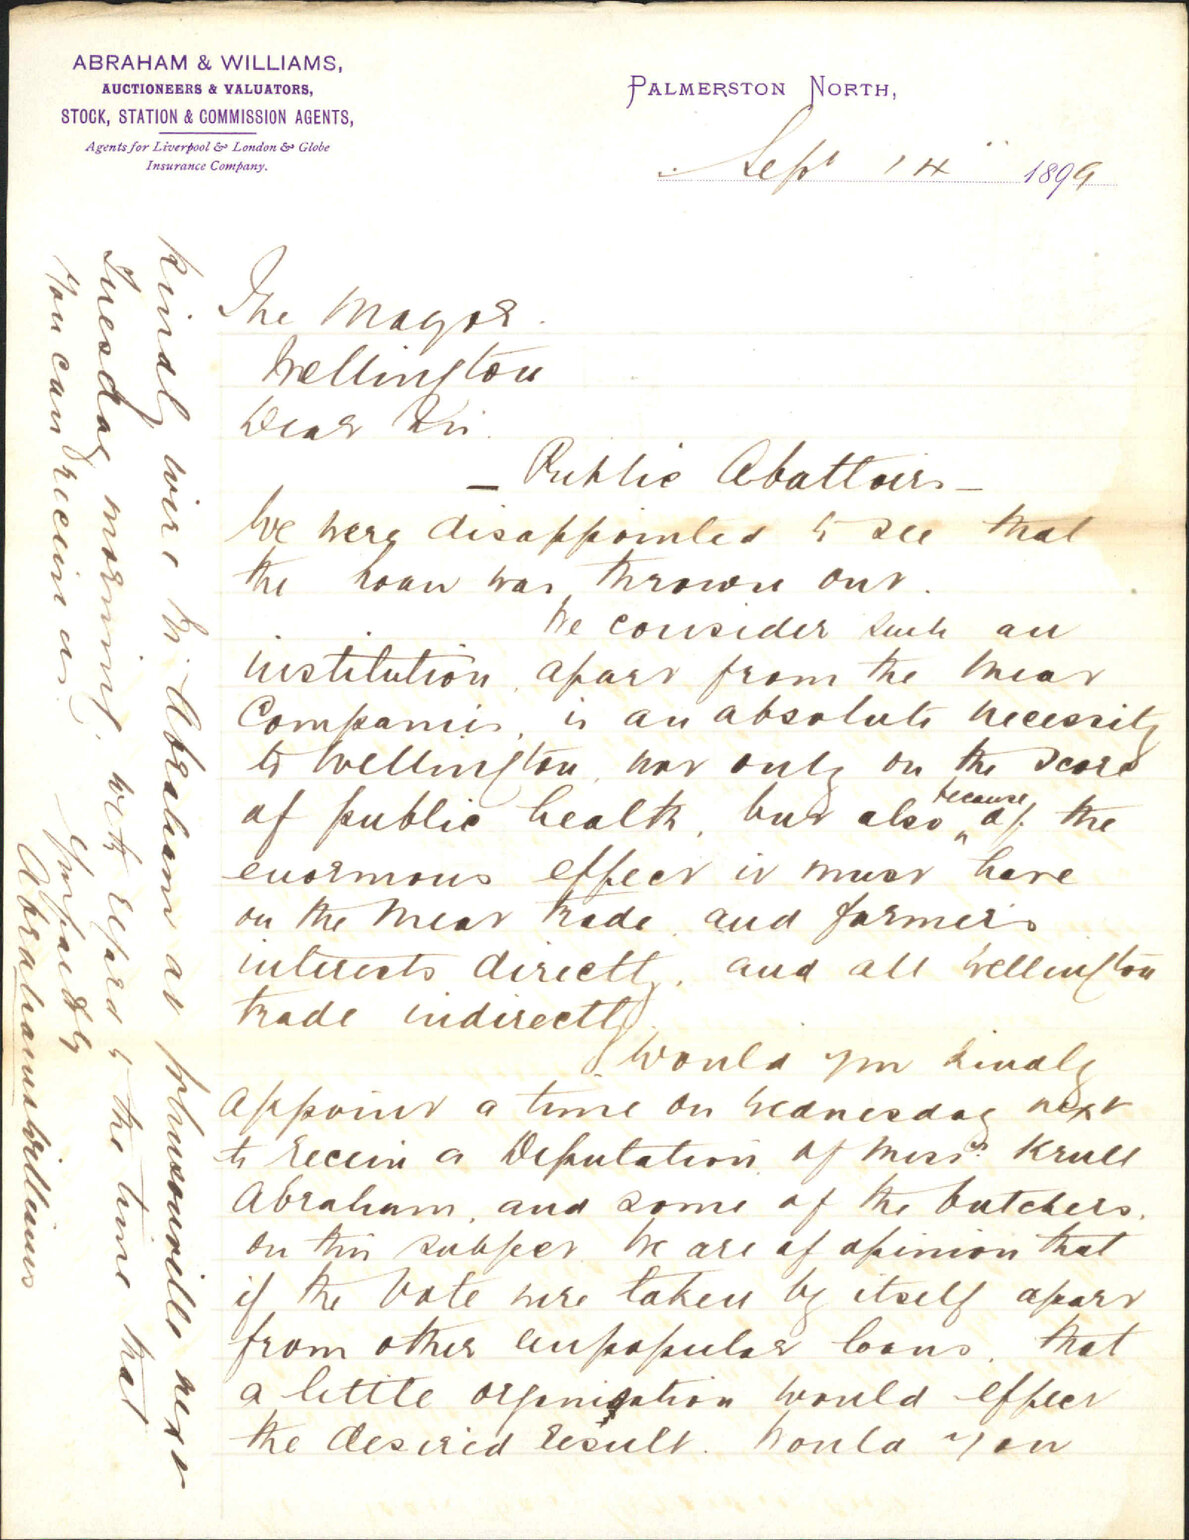 ABRAHAM & WILLIAMS,
AUCTIONEERS & VALUATORS,
STOCK, STATION & COMMISSION AGENTS,
Agents for Liverpool & London & Globe
Insurance Company.
PALMERSTON NORTH,
Sept 14" 1899
The Mayor.
Wellington
Dear Sir.
- Public Abattoirs -
We were disappointed to see that
the loan was thrown out.
We consider such an
institution, apart from the Meat
Companies, is an absolute necessity
to Wellington, not only on the score
of public health, but also because of the
enormous effect it must have
on the Meat trade, and farmers
interests directly, and all Wellington
trade indirectly.
Would you kindly
appoint a time on Wednesday next
to receive a Deputation of Messrs Krull
Abraham, and some of the butchers.
on this subject. We are of opinion that
if the Vote were taken by itself apart
from other unpopular loans, that
a little organisation would effect
the desired result. Would you
kindly wire Mr. Abraham at Johnsonville next
Tuesday morning, with regard to the time that
you can receive us.
Yrs faithfly
Abraham & Williams